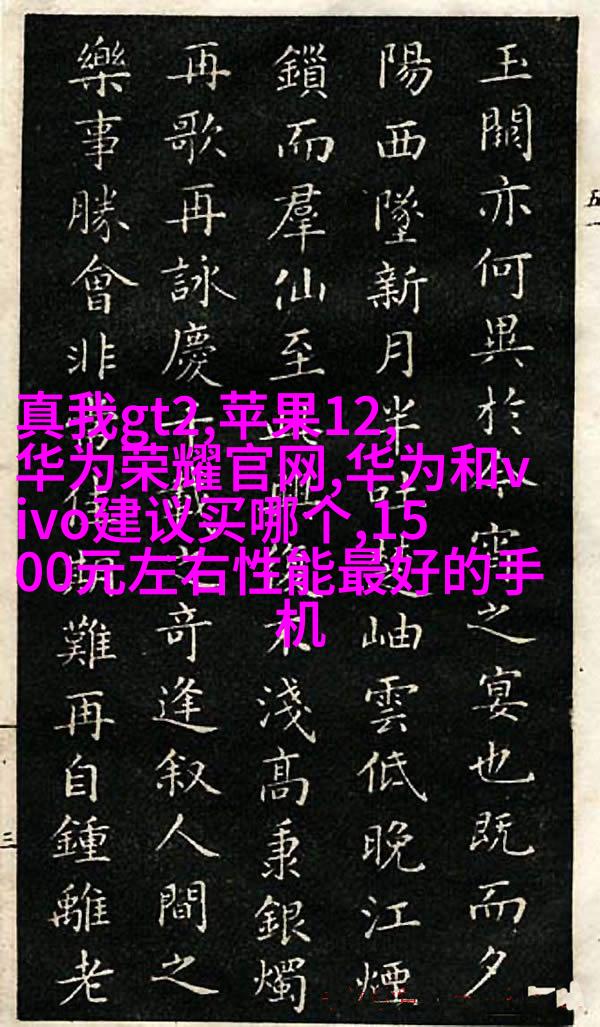 玉闕亦何異於之宴也既而夕
陽西墜新月半岫雲低晚江煙
鎖而羣仙至此興不淺高秉銀燭
再歌再詠慶千載之奇逢叙人間之
樂事勝會非常期難再自鍾離老
真我gt2,苹果12,
华为荣耀官网,华为和v
ivo建议买哪个,15
00元左右性能最好的手
机
五一
三